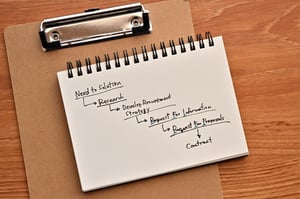 Need to Solution
Research
Develop Procurement
Strategy
Request For Information
Request For Proposals
Contract